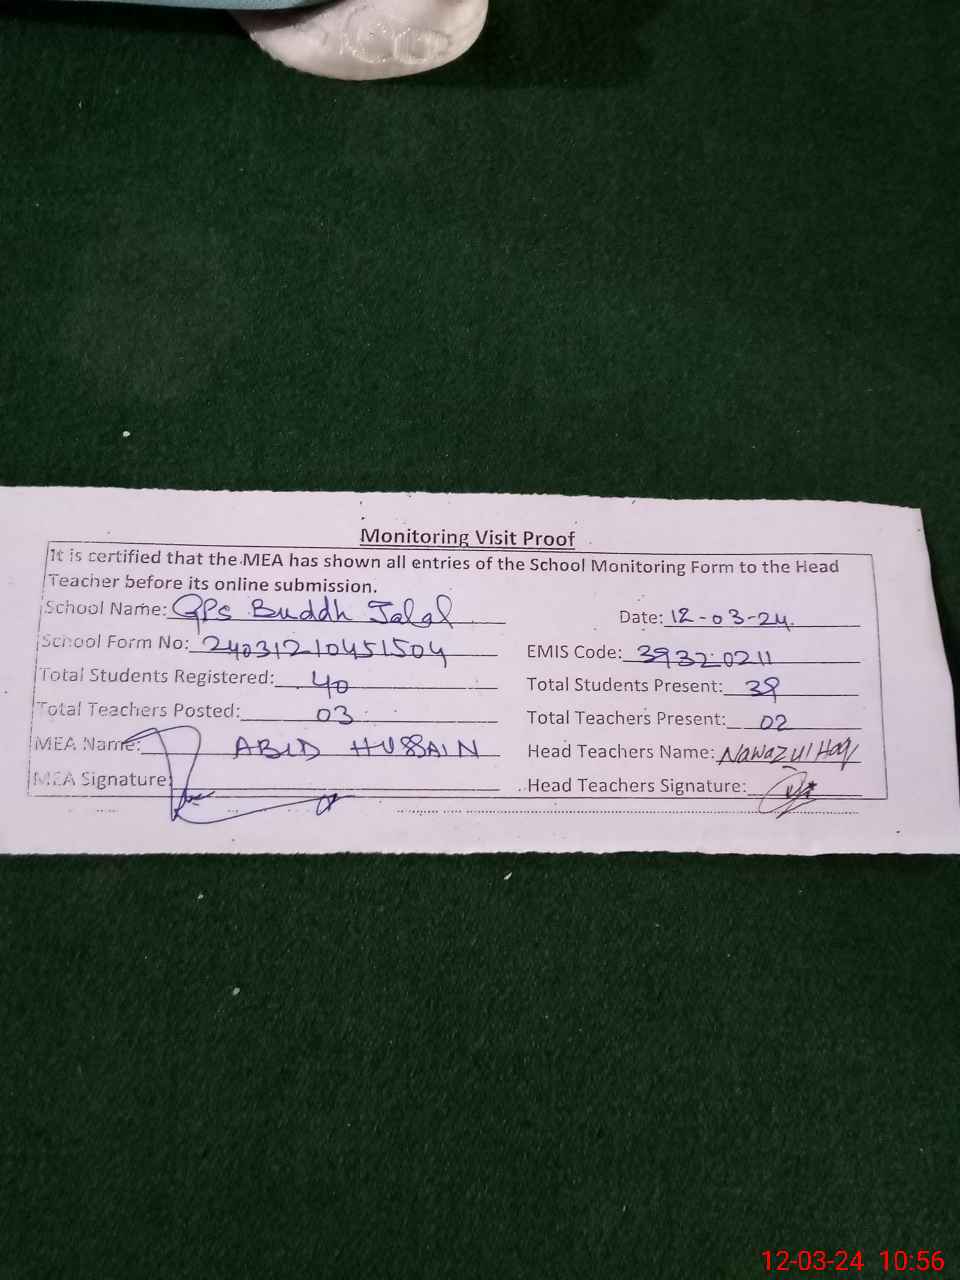 Monitoring Visit Proof
It is certified that the MEA has shown all entries of the School Monitoring Form to the Head
Teacher before its online submission.
School Name: GPS Buddh Jalal Date: 12-03-24.
School Form No: 24031210451504 EMIS Code: 39320211
Total Students Registered: 40 Total Students Present: 39
Total Teachers Posted: 03 Total Teachers Present: 02
MEA Name: ABID HUSSAIN Head Teachers Name: Nawazul Haq
MEA Signature: Head Teachers Signature:
12-03-24 10:56